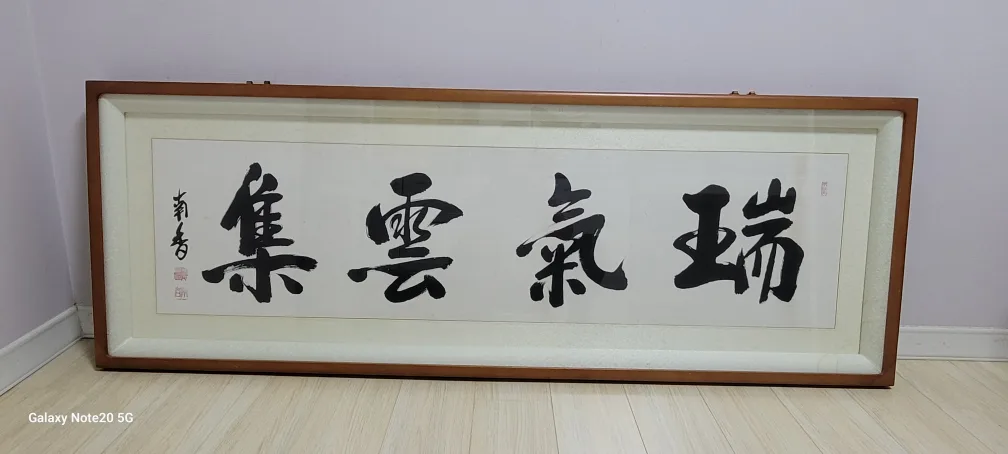 瑞氣雲集
南香
Galaxy Note20 5G